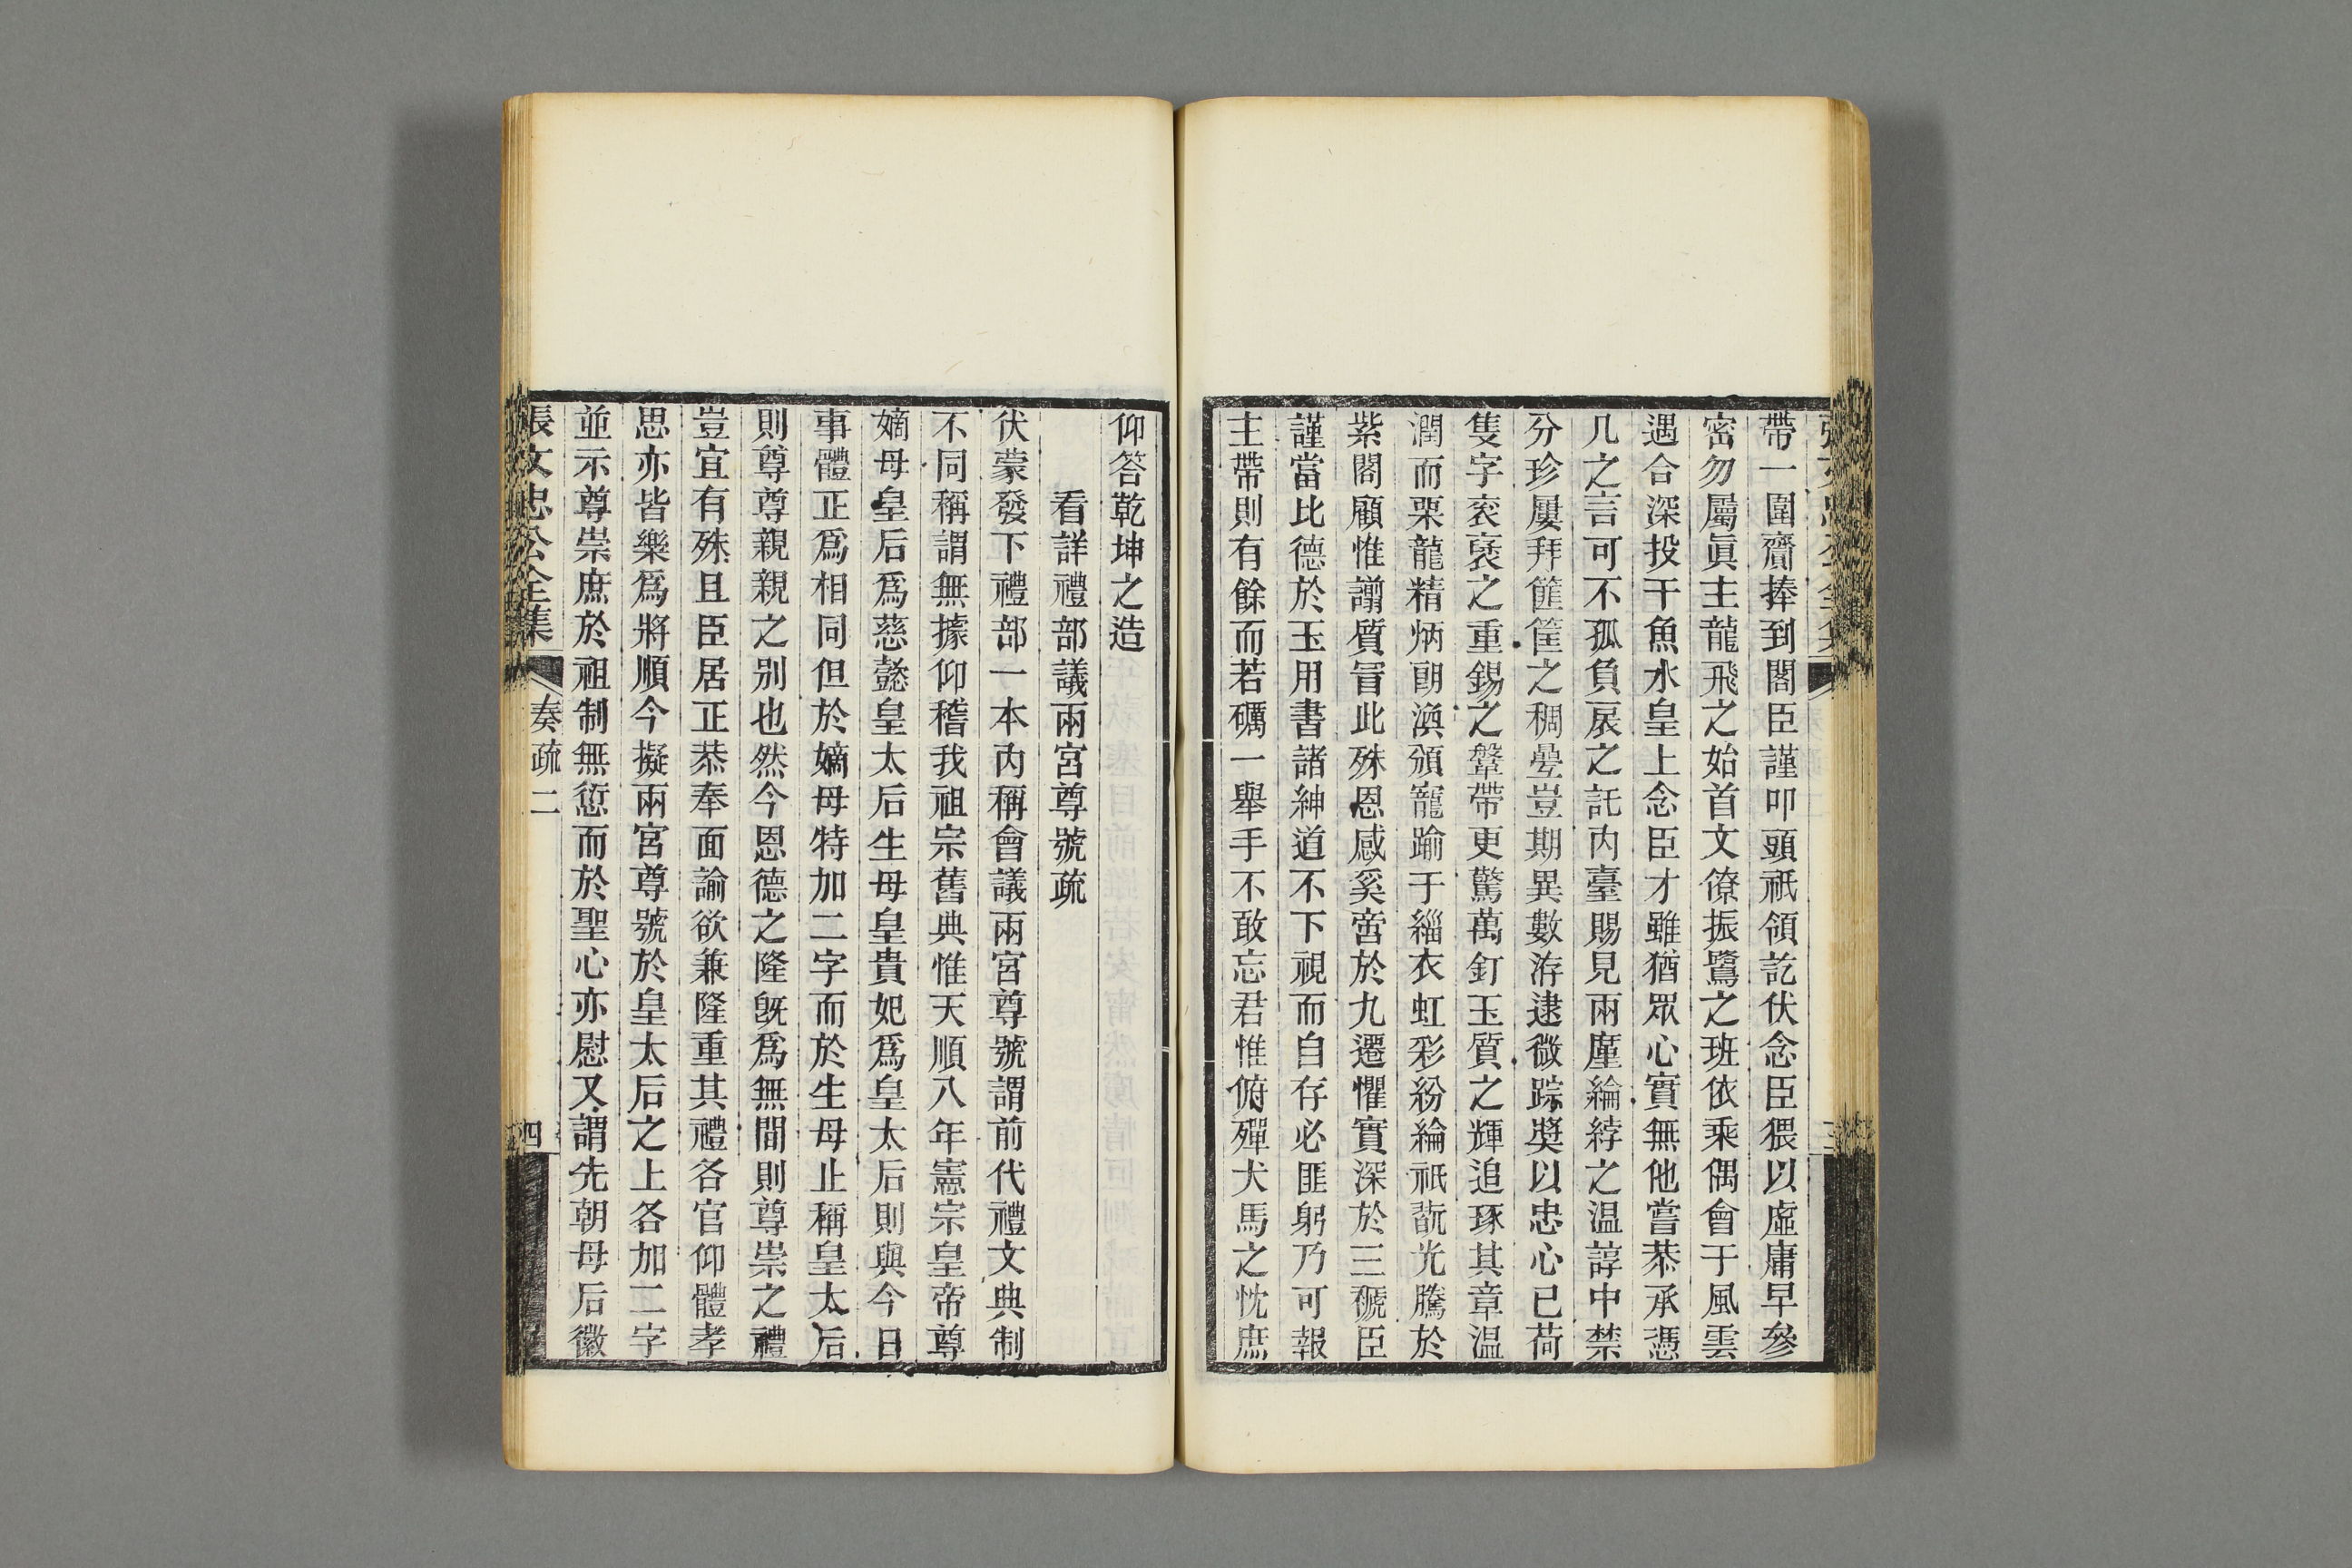 帶一圍齎捧到閣臣謹叩頭祇領訖伏念臣猥以虛庸早參
密勿屬眞主龍飛之始首文僚振鷺之班依乘偶會于風雲
遇合深投于魚水皇上念臣才雖猶眾心實無他嘗恭承憑
几之言可不孤負扆之託内臺賜見兩廑綸綍之温諄中禁
分珍屢拜篚筐之稠疊豈期異數洊逮微踪奬以忠心已荷
隻字衮褒之重錫之鞶帶更驚萬釘玉質之輝追琢其章温
潤而栗龍精炳朗渙頒寵踰于緇衣虹彩紛綸祇翫光騰於
紫閣顧惟譾質冒此殊恩感奚啻於九遷懼實深於三褫臣
謹當比德於玉用書諸紳道不下視而自存必匪躬乃可報
主帶則有餘而若礪一舉手不敢忘君惟俯殫犬馬之忱庶
仰答乾坤之造
看詳禮部議兩宮尊號疏
伏蒙發下禮部一本内稱會議兩宮尊號謂前代禮文典制
不同稱謂無據仰稽我祖宗舊典惟天順八年憲宗皇帝尊
嫡母皇后爲慈懿皇太后生母皇貴妃爲皇太后則與今日
事體正爲相同但於嫡母特加二字而於生母止稱皇太后
則尊尊親親之别也然今恩德之隆旣爲無間則尊崇之禮
豈宜有殊且臣居正恭奉面諭欲兼隆重其禮各官仰體孝
思亦皆樂爲將順今擬兩宮尊號於皇太后之上各加二字
並示尊崇庶於祖制無愆而於聖心亦慰又謂先朝母后徽
張文忠公全集
奏疏二
四